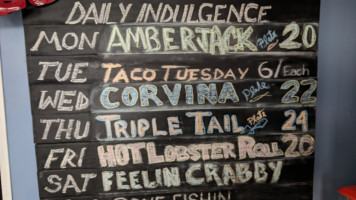 DAILY INDULGENCE
MON AMBERJACK Plate 20
TUE TACO TUESDAY 6/Each
WED CORVINA Plate 22
THU TRIPLE TAIL Plate 24
FRI HOT LOBSTER ROLL 20
SAT FEELIN CRABBY
GONE FISHIN